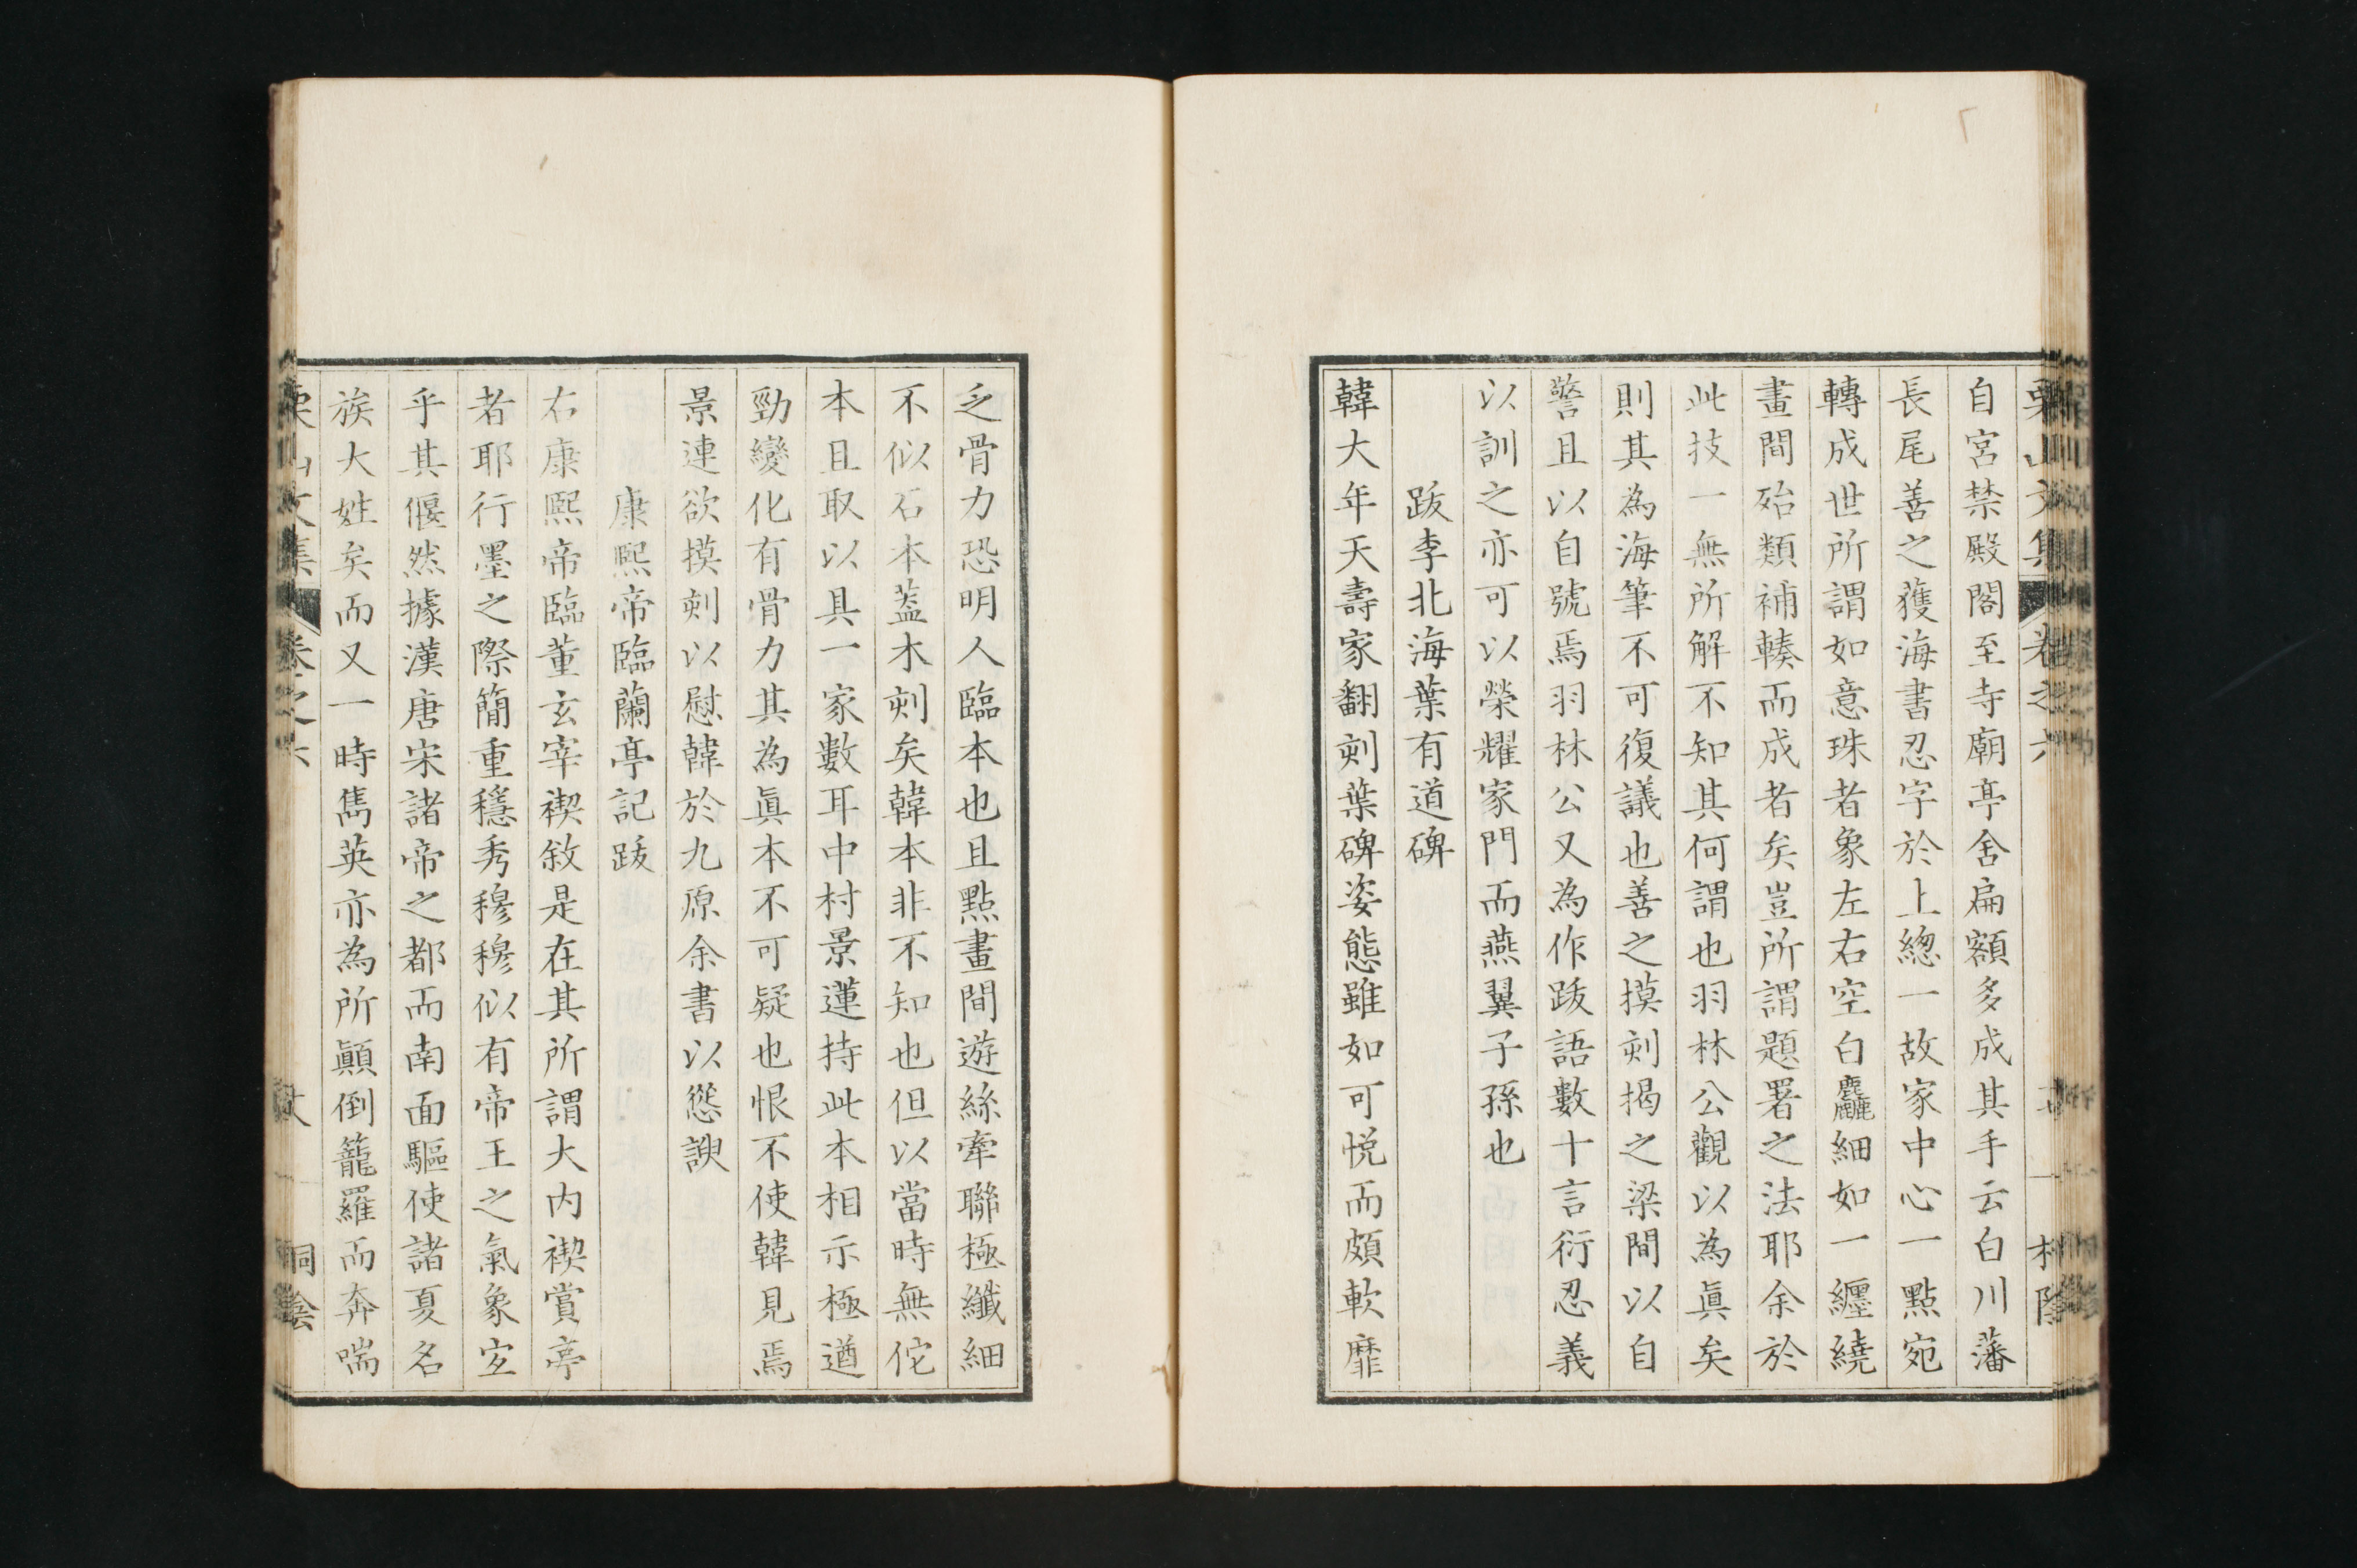 自宮禁殿閣至寺廟亭舍扁額多成其手云白川藩
長尾善之獲海書忍字於上總一故家中心一點宛
轉成世所謂如意珠者象左右空白麤細如一纏繞
畫間殆類補轃而成者矣豈所謂題署之法耶余於
此技一無所解不知其何謂也羽林公觀以為眞矣
則其為海筆不可復議也善之摸刻揭之梁間以自
警且以自號焉羽林公又為作跋語數十言衍忍義
以訓之亦可以榮耀家門而燕翼子孫也
跋李北海葉有道碑
韓大年天壽家翻刻葉碑姿態雖如可悅而頗軟靡
乏骨力恐明人臨本也且點畫間遊絲牽聯極纖細
不似石本蓋木刻矣韓本非不知也但以當時無佗
本且取以具一家數耳中村景蓮持此本相示極遒
勁變化有骨力其為眞本不可疑也恨不使韓見焉
景連欲摸刻以慰韓於九原余書以慫諛
康熙帝臨蘭亭記跋
右康熙帝臨董玄宰禊敘是在其所謂大内禊賞亭
者耶行墨之際簡重穩秀穆穆似有帝王之氣象宐
乎其偃然據漢唐宋諸帝之都而南面驅使諸夏名
族大姓矣而又一時雋英亦為所顚倒籠羅而奔喘
栗山文集 卷之六 桐陰